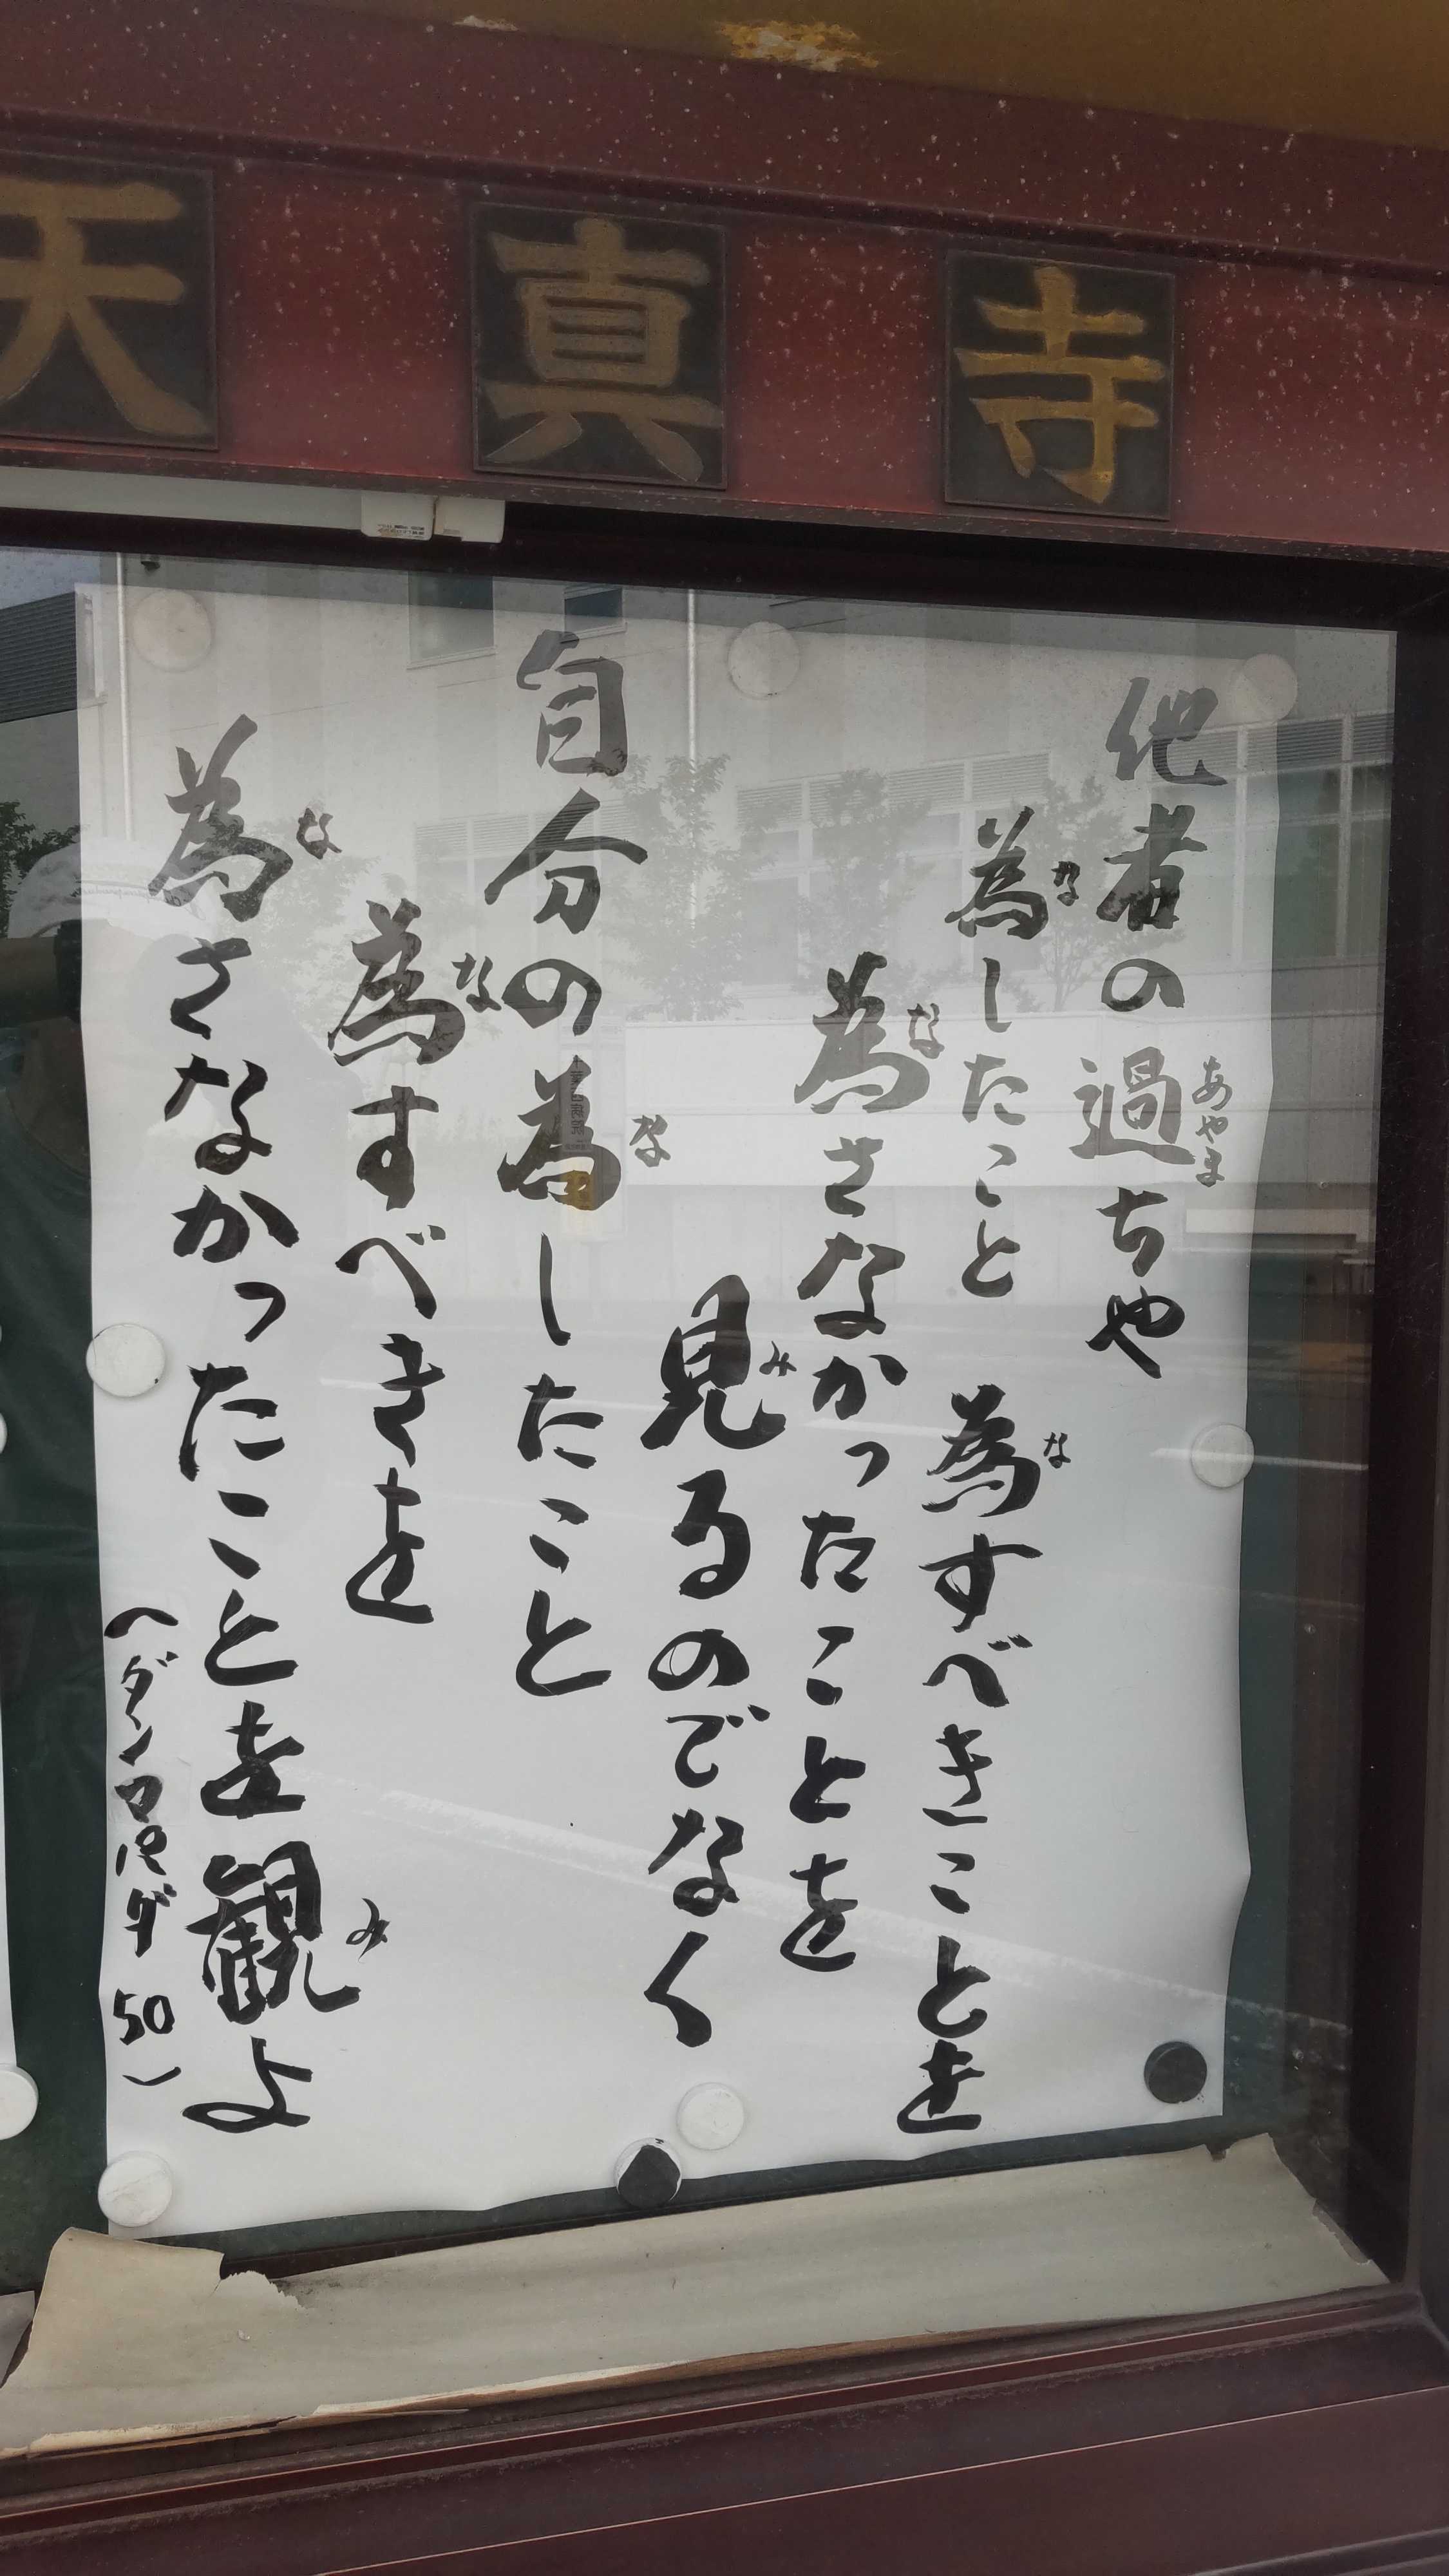 天真寺
他者の過ちや
あやま
為したこと 為すべきことを
な な
為さなかったことを
な
見るのでなく
み
自分の為したこと
な
為すべきを
な
為さなかったことを観よ
な み
(ダンマパダ 50)